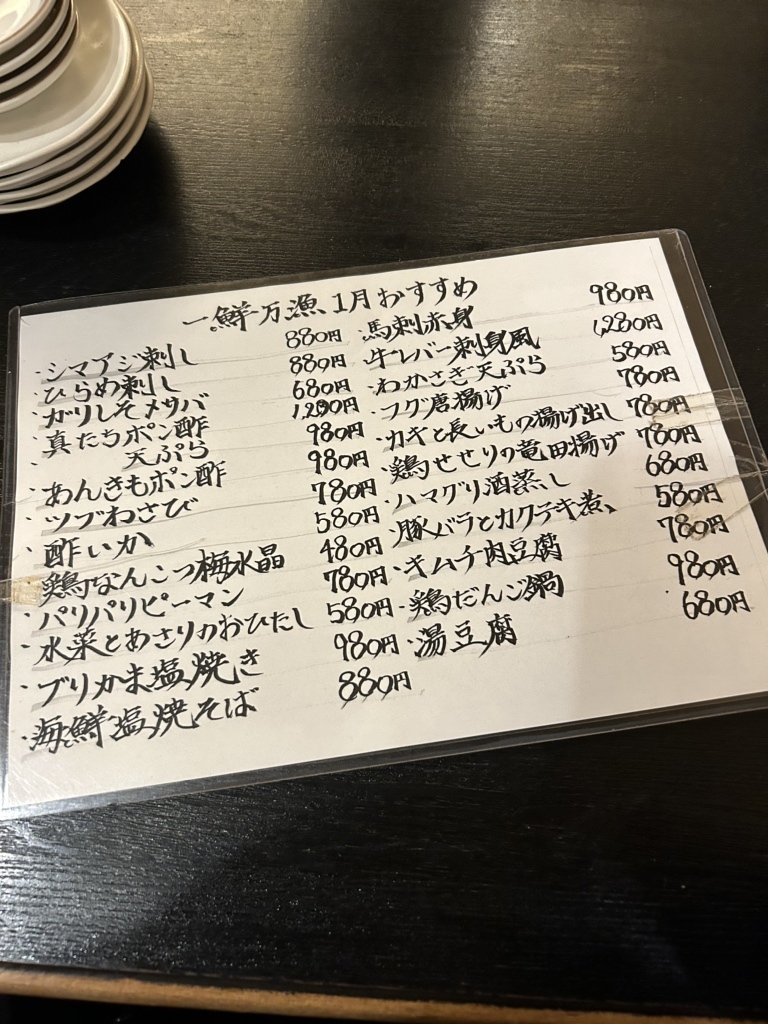 一鮮万漁 1月おすすめ
・シマアジ刺し 880円
・ひらめ刺し 880円
・ガリしそメサバ 680円
・真たちポン酢 1,200円
・天ぷら 980円
・あんきもポン酢 980円
・ツブわさび 780円
・酢いか 580円
・鶏なんこつ梅水晶 480円
・パリパリピーマン 780円
・水菜とあさりのおひたし 580円
・ブリかま塩焼き 980円
・海鮮塩焼そば 880円
・馬刺赤身 980円
・牛レバー刺身風 1,280円
・わかさぎ天ぷら 580円
・フグ唐揚げ 780円
・カキと長いもの揚げ出し 780円
・鶏せせりの竜田揚げ 780円
・ハマグリ酒蒸し 680円
・豚バラとカクテキ煮 580円
・キムチ肉豆腐 780円
・鶏だんご鍋 980円
・湯豆腐 680円